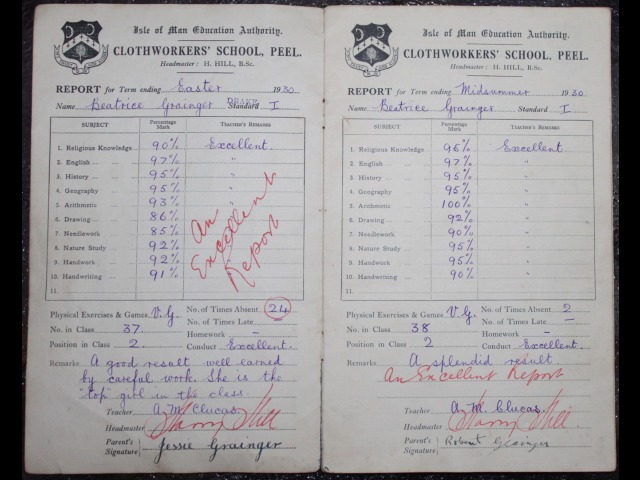 Isle of Man Education Authority.
CLOTHWORKERS' SCHOOL, PEEL.
Headmaster: H. HILL, B.Sc.
REPORT for Term ending Easter 1930
Name Beatrice Grainger DRAKE Standard I
SUBJECT Percentage Mark TEACHER'S REMARKS
1. Religious Knowledge 90% Excellent.
2. English 97% "
3. History 95% "
4. Geography 95% "
5. Arithmetic 93% "
6. Drawing 86%
7. Needlework 85%
8. Nature Study 92%
9. Handwork 92%
10. Handwriting 91%
11.
An
Excellent
Report
Physical Exercises & Games V.G. No. of Times Absent 24
No. of Times Late –
No. in Class 37. Homework –
Position in Class 2. Conduct Excellent.
Remarks A good result well earned
by careful work. She is the
"top" girl in the class.
Teacher A. M. Clucas.
Headmaster Harry Hill
Parent's Signature Jessie Grainger
Isle of Man Education Authority.
CLOTHWORKERS' SCHOOL, PEEL.
Headmaster: H. HILL, B.Sc.
REPORT for Term ending Midsummer 1930
Name Beatrice Grainger Standard I
SUBJECT Percentage Mark TEACHER'S REMARKS
1. Religious Knowledge 96% Excellent
2. English 97% "
3. History 95% "
4. Geography 95% "
5. Arithmetic 100% "
6. Drawing 92% "
7. Needlework 90% "
8. Nature Study 95% "
9. Handwork 92% "
10. Handwriting 90% "
11.
Physical Exercises & Games V.G. No. of Times Absent 2
No. of Times Late –
No. in Class 38 Homework –
Position in Class 2 Conduct Excellent.
Remarks A splendid result
An Excellent Report
Teacher A. M. Clucas.
Headmaster Harry Hill
Parent's Signature Robert Grainger